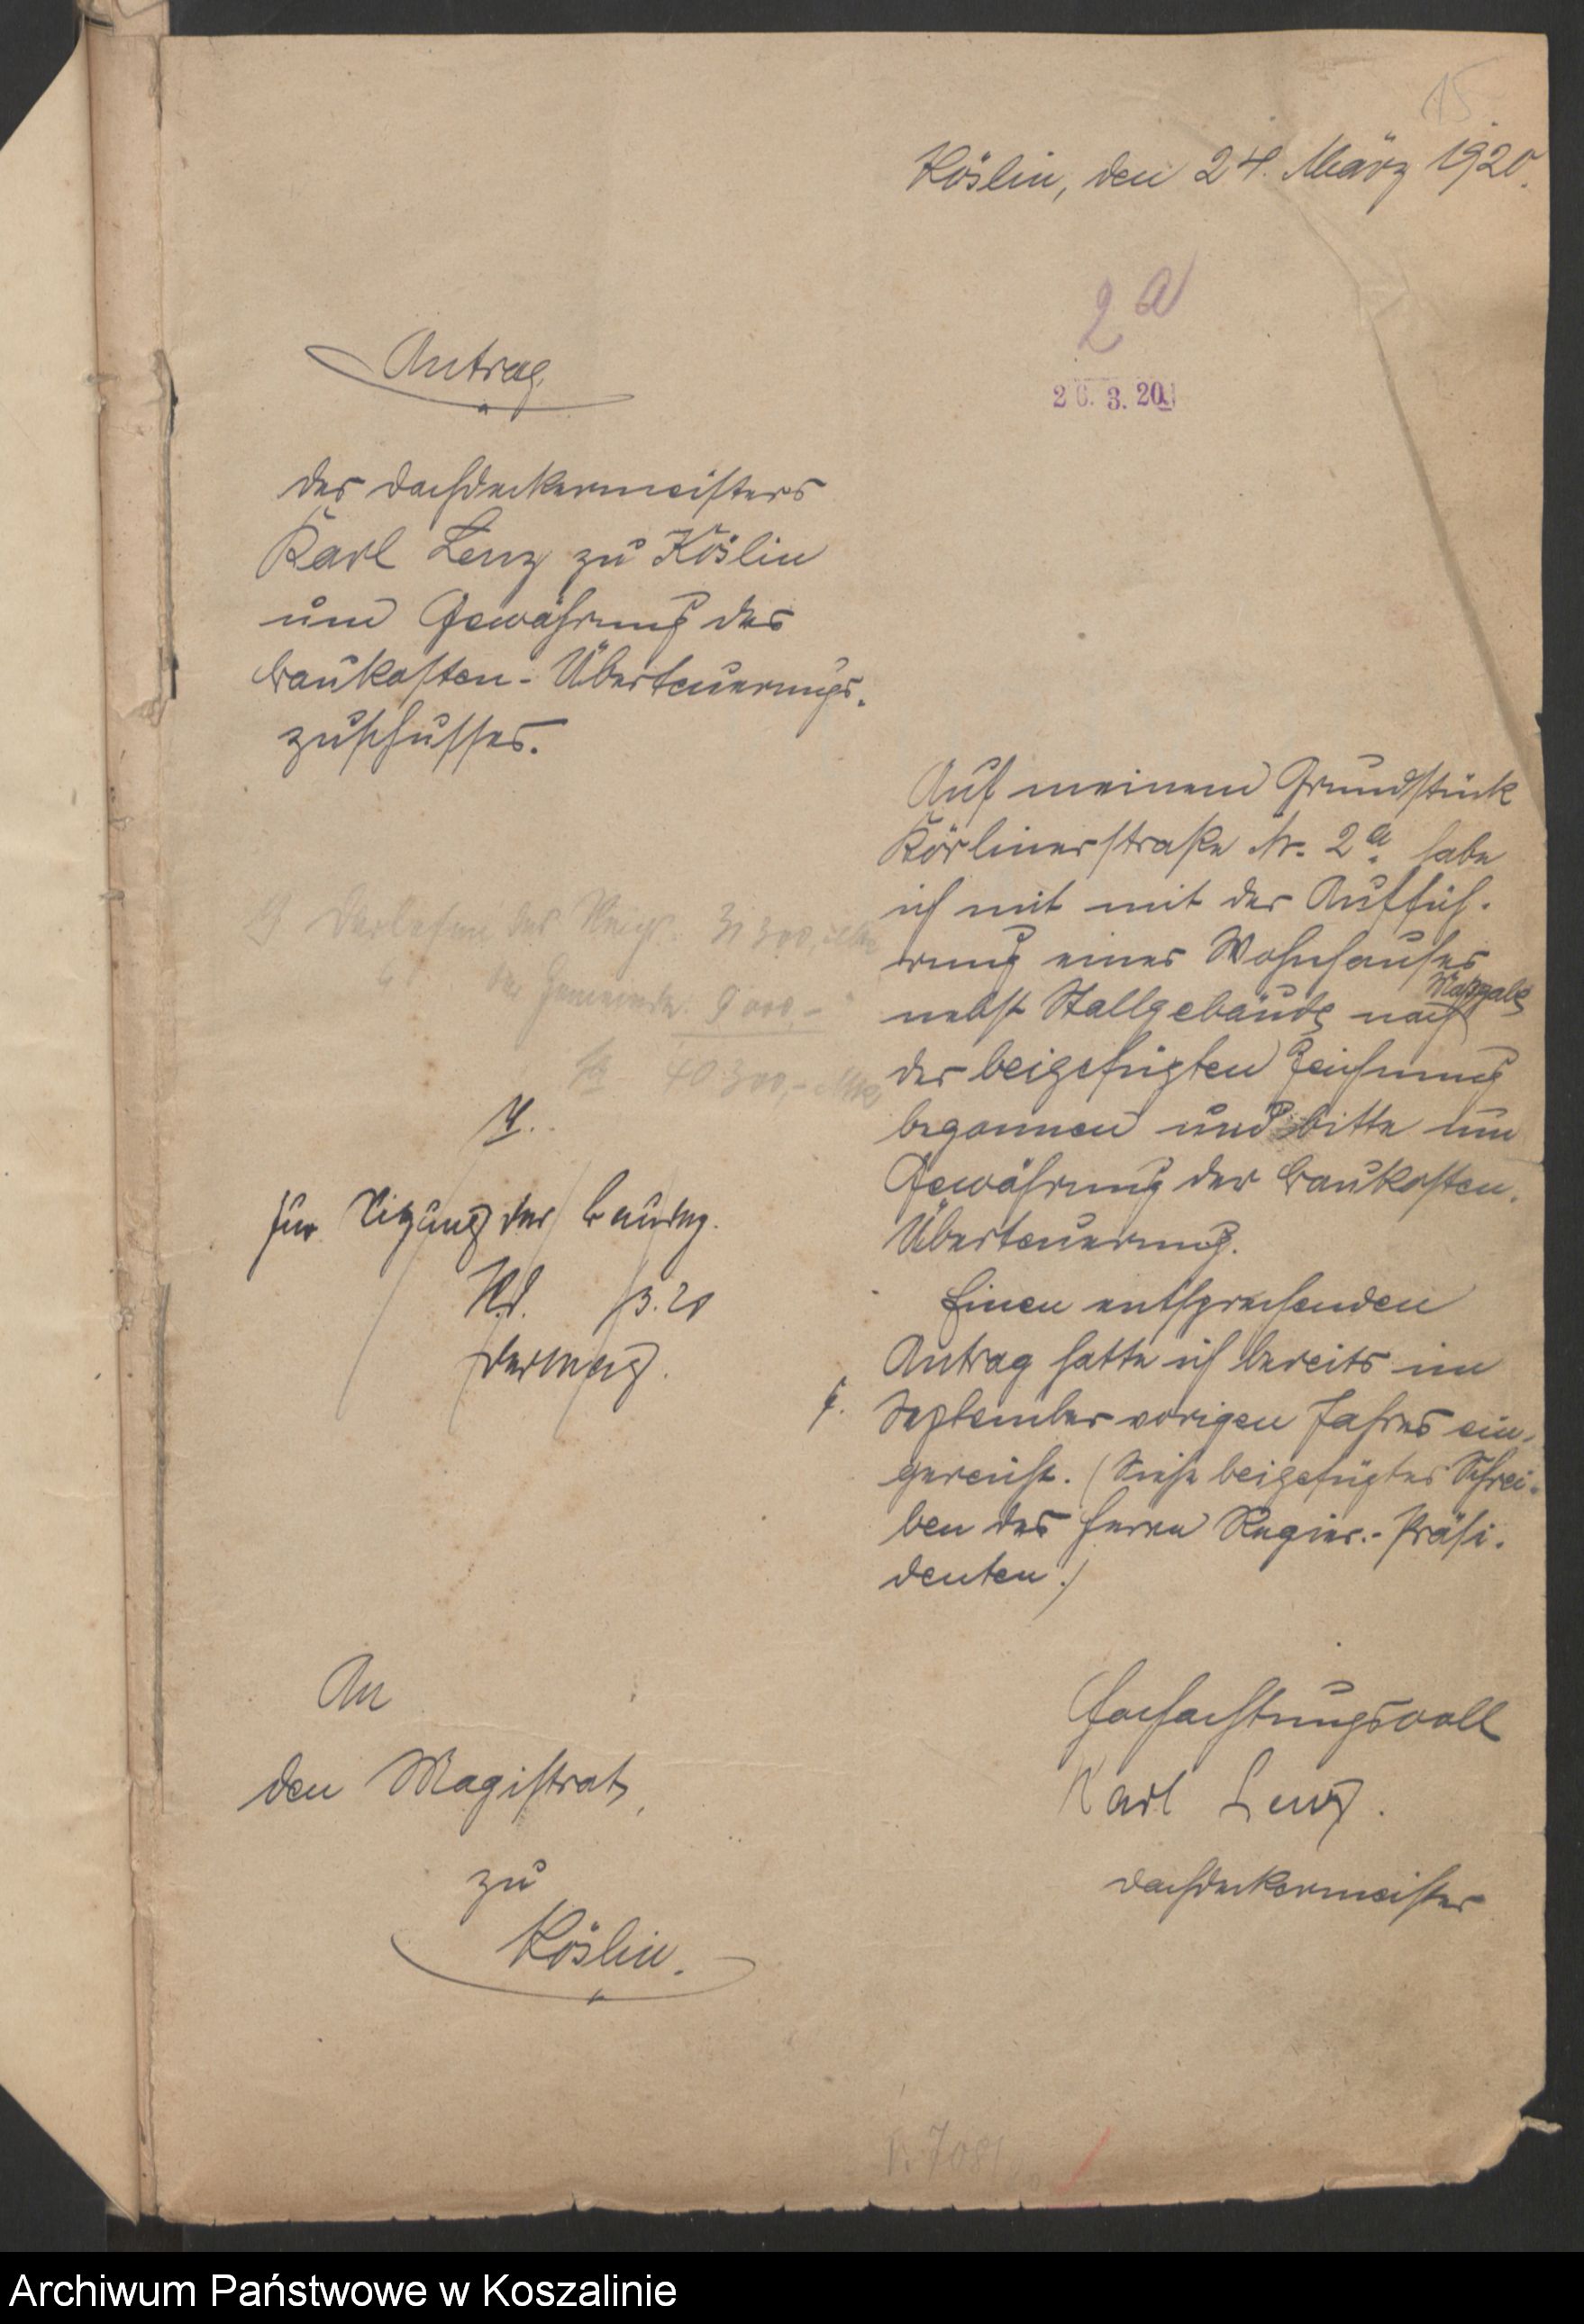 15
Köslin, den 24. März 1920.
2a
26. 3. 20.
Antrag
des Dachdeckermeisters
Karl Lenz zu Köslin
um Gewährung des
Baukosten-Überteuerungs-
zuschusses.
Auf meinem Grundstück
Körlinerstraße Nr. 2a. habe
ich mit mit der Auffüh-
rung eines Wohnhauses
nebst Stallgebäude nach Maßgabe
der beigefügten Zeichnung
begonnen und bitte um
Gewährung der Baukosten-
Überteuerung.
Einen entsprechenden
Antrag hatte ich bereits im
September vorigen Jahres ein-
gereicht. (Siehe beigefügtes Schrei-
ben des Herrn Regier.-Präsi-
denten.)
Darlehen des Reichs. 31 300,- Mk
der Gemeinde. 9 000,- "
40 300,- Mk
Zur Sitzung der
/3. 20
An
den Magistrat
zu
Köslin.
Hochachtungsvoll
Karl Lenz.
Dachdeckermeister
Archiwum Państwowe w Koszalinie